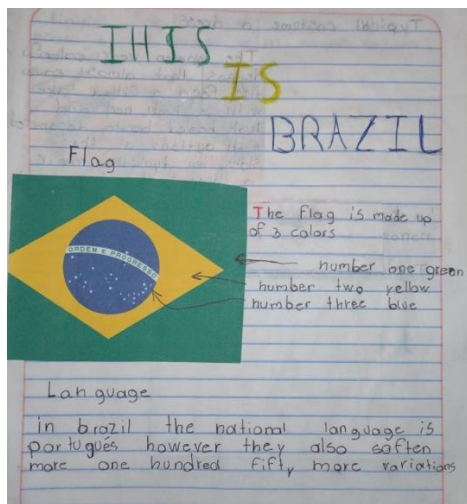 THIS
IS
BRAZIL
Flag
ORDEM E PROGRESSO
The flag is made up
of 3 colors
number one green
number two yellow
number three blue
Language
in brazil the national language is
portugués however they also soften
more one hundred fifty more variations